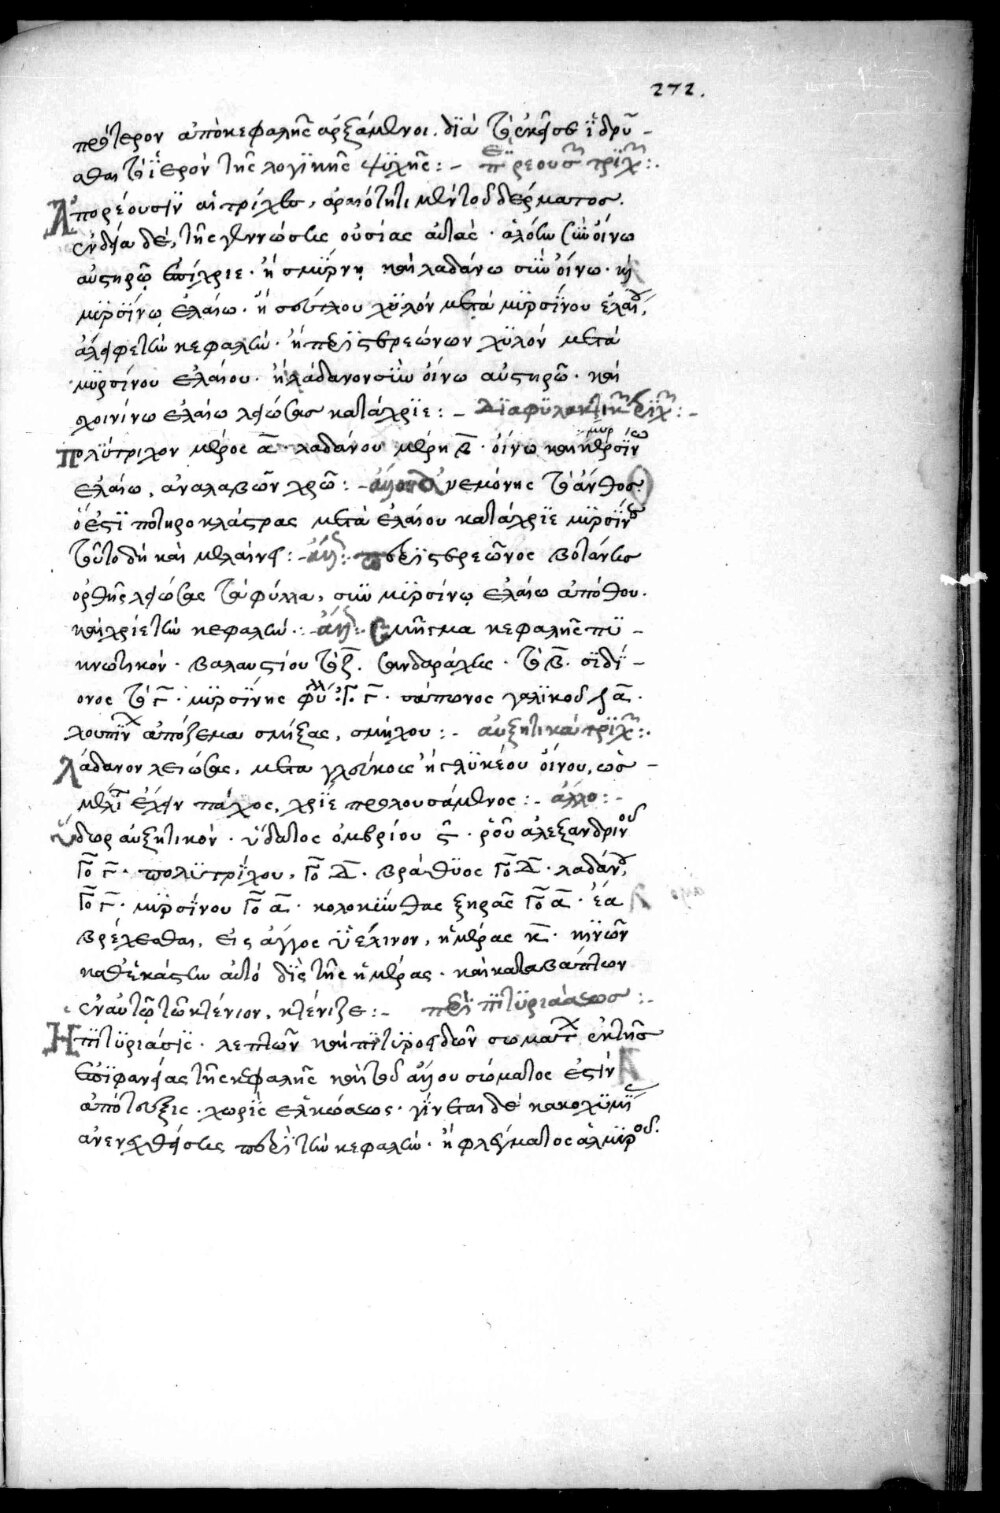 272.
πρότερον ἀπὸ κεφαλῆς ἀρξάμενοι. διὰ τὸ ἐκεῖσε ἱδρῦ-
σθαι τὸ ἱερὸν τῆς λογικῆς ψυχῆς :-
Ἀπορέουσιν αἱ τρίχες, ἀραιότητι μὲν τοῦ δέρματος.
ἐνδεία δὲ, τῆς γεννώσεις οὐσίας αὐτάς · ἀλόην σὺν οἴνω
αὐστηρῶ ἐπίχριε · ἢ σμύρνη καὶ λαδάνω σὺν οἴνω · ἢ
μυρσίνω ἐλαίω · ἢ σεύτλου χυλὸν μετὰ μυρσίνου ἐλαί
ἄλειφε τὴν κεφαλήν · ἢ περιστερεώνων χυλὸν μετὰ
μυρσίνου ἐλαίου · ἢ λάδανον σὺν οἴνω αὐστηρῶ · καὶ
σχοινίνω ἐλαίω λειώσας κατάχριε :- Διαφυλακτικ τριχ :-
Πολύτριχον μέρος α · λαδάνου μέρη β · οἴνω καὶ μυρσίνω
ἐλαίω, ἀναλαβὼν χρῶ :- ἀνεμώνης τὸ ἄνθος
ὅ ἐστι μετὰ ἐλαίου κατάχριε μυρσίν
τοῦτο δὴ καὶ μελαίνει :- ἄλλ :- περιστερεῶνος βοτάνης
ὀρθῆς λειώσας τὰ φύλλα, σὺν μυρσίνω ἐλαίω ἀπόθου.
καὶ χρίε τὴν κεφαλήν :- ἄλλ :- Σμῆγμα κεφαλῆς πυ-
κνωτικόν · βαλαυστίου · σανδαράχης · σιδί-
ονος · μυρσίνης φύλλ · σάπωνος γαλλικοῦ
ἀπόζεμα σμήξας, σμήχου :- αὐξητικὰ τριχ :-
Λάδανον λειώσας, μετὰ γλεύκους ἢ γλυκέου οἴνου, ὡς
μέλι ἔχειν πάχος, χρίε προλουσάμενος :- ἄλλο :-
Ὕδωρ αὐξητικόν · ὕδατος ὀμβρίου · ῥοῦ ἀλεξανδρινοῦ
πολυτρίχου · βράθυος · λαδάν
μυρσίνου · κολοκύνθας ξηρᾶς · ἔα
βρέχεσθαι, εἰς ἄγγος ὑέλινον, ἡμέρας κ · κινῶν
καθ' ἑκάστην αὐτὸ δὶς τῆς ἡμέρας · καὶ καταβάπτων
ἐν αὐτῶ τὸ κτένιον, κτένιζε :- περὶ πιτυριάσεως :-
Ἡ πιτυρίασις · λεπτῶν καὶ πιτυροειδῶν σωματ ἐκ τῆς
ἐπιφανείας τῆς κεφαλῆς καὶ τοῦ ἄλλου σώματος ἐστὶν
ἀπότευξις · χωρὶς ἑλκώσεως · γίνεται δὲ κακοχυμί
ἀνενεχθείσης περὶ τὴν κεφαλήν · ἢ φλέγματος ἁλμυροῦ.